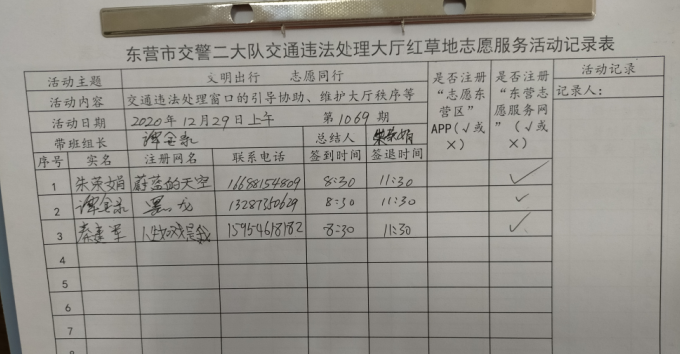 东营市交警二大队交通违法处理大厅红草地志愿服务活动记录表
活动主题 文明出行 志愿同行 是否注册“志愿东营区”APP(√或×) 是否注册“东营志愿服务网”(√或×) 活动记录
活动内容 交通违法处理窗口的引导协助、维护大厅秩序等 记录人:
活动日期 2020年12月29日上午 第1069期
带班组长 谭金录 总结人 朱荣娟
序号 实名 注册网名 联系电话 签到时间 签退时间
1 朱荣娟 蔚蓝的天空 16688154809 8:30 11:30 √
2 谭金录 黑龙 13287360629 8:30 11:30 √
3 秦建军 15954618182 8:30 11:30 √
4
5
6
7